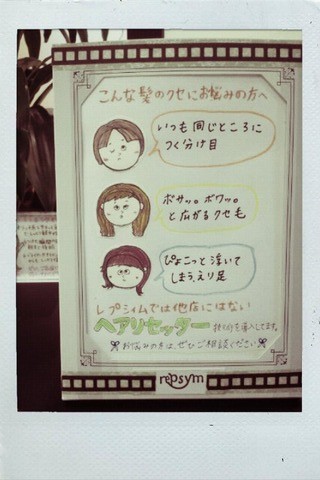 こんな髪のクセにお悩みの方へ
いつも同じところに
つく分け目
ボサッ。ボワッ。
と広がるクセ毛
ぴょこっと浮いて
しまう、えり足
レプシィムでは他店にはない
ヘアリセッター 技術を導入してます。
お悩みの方は、ぜひご相談ください
repsym